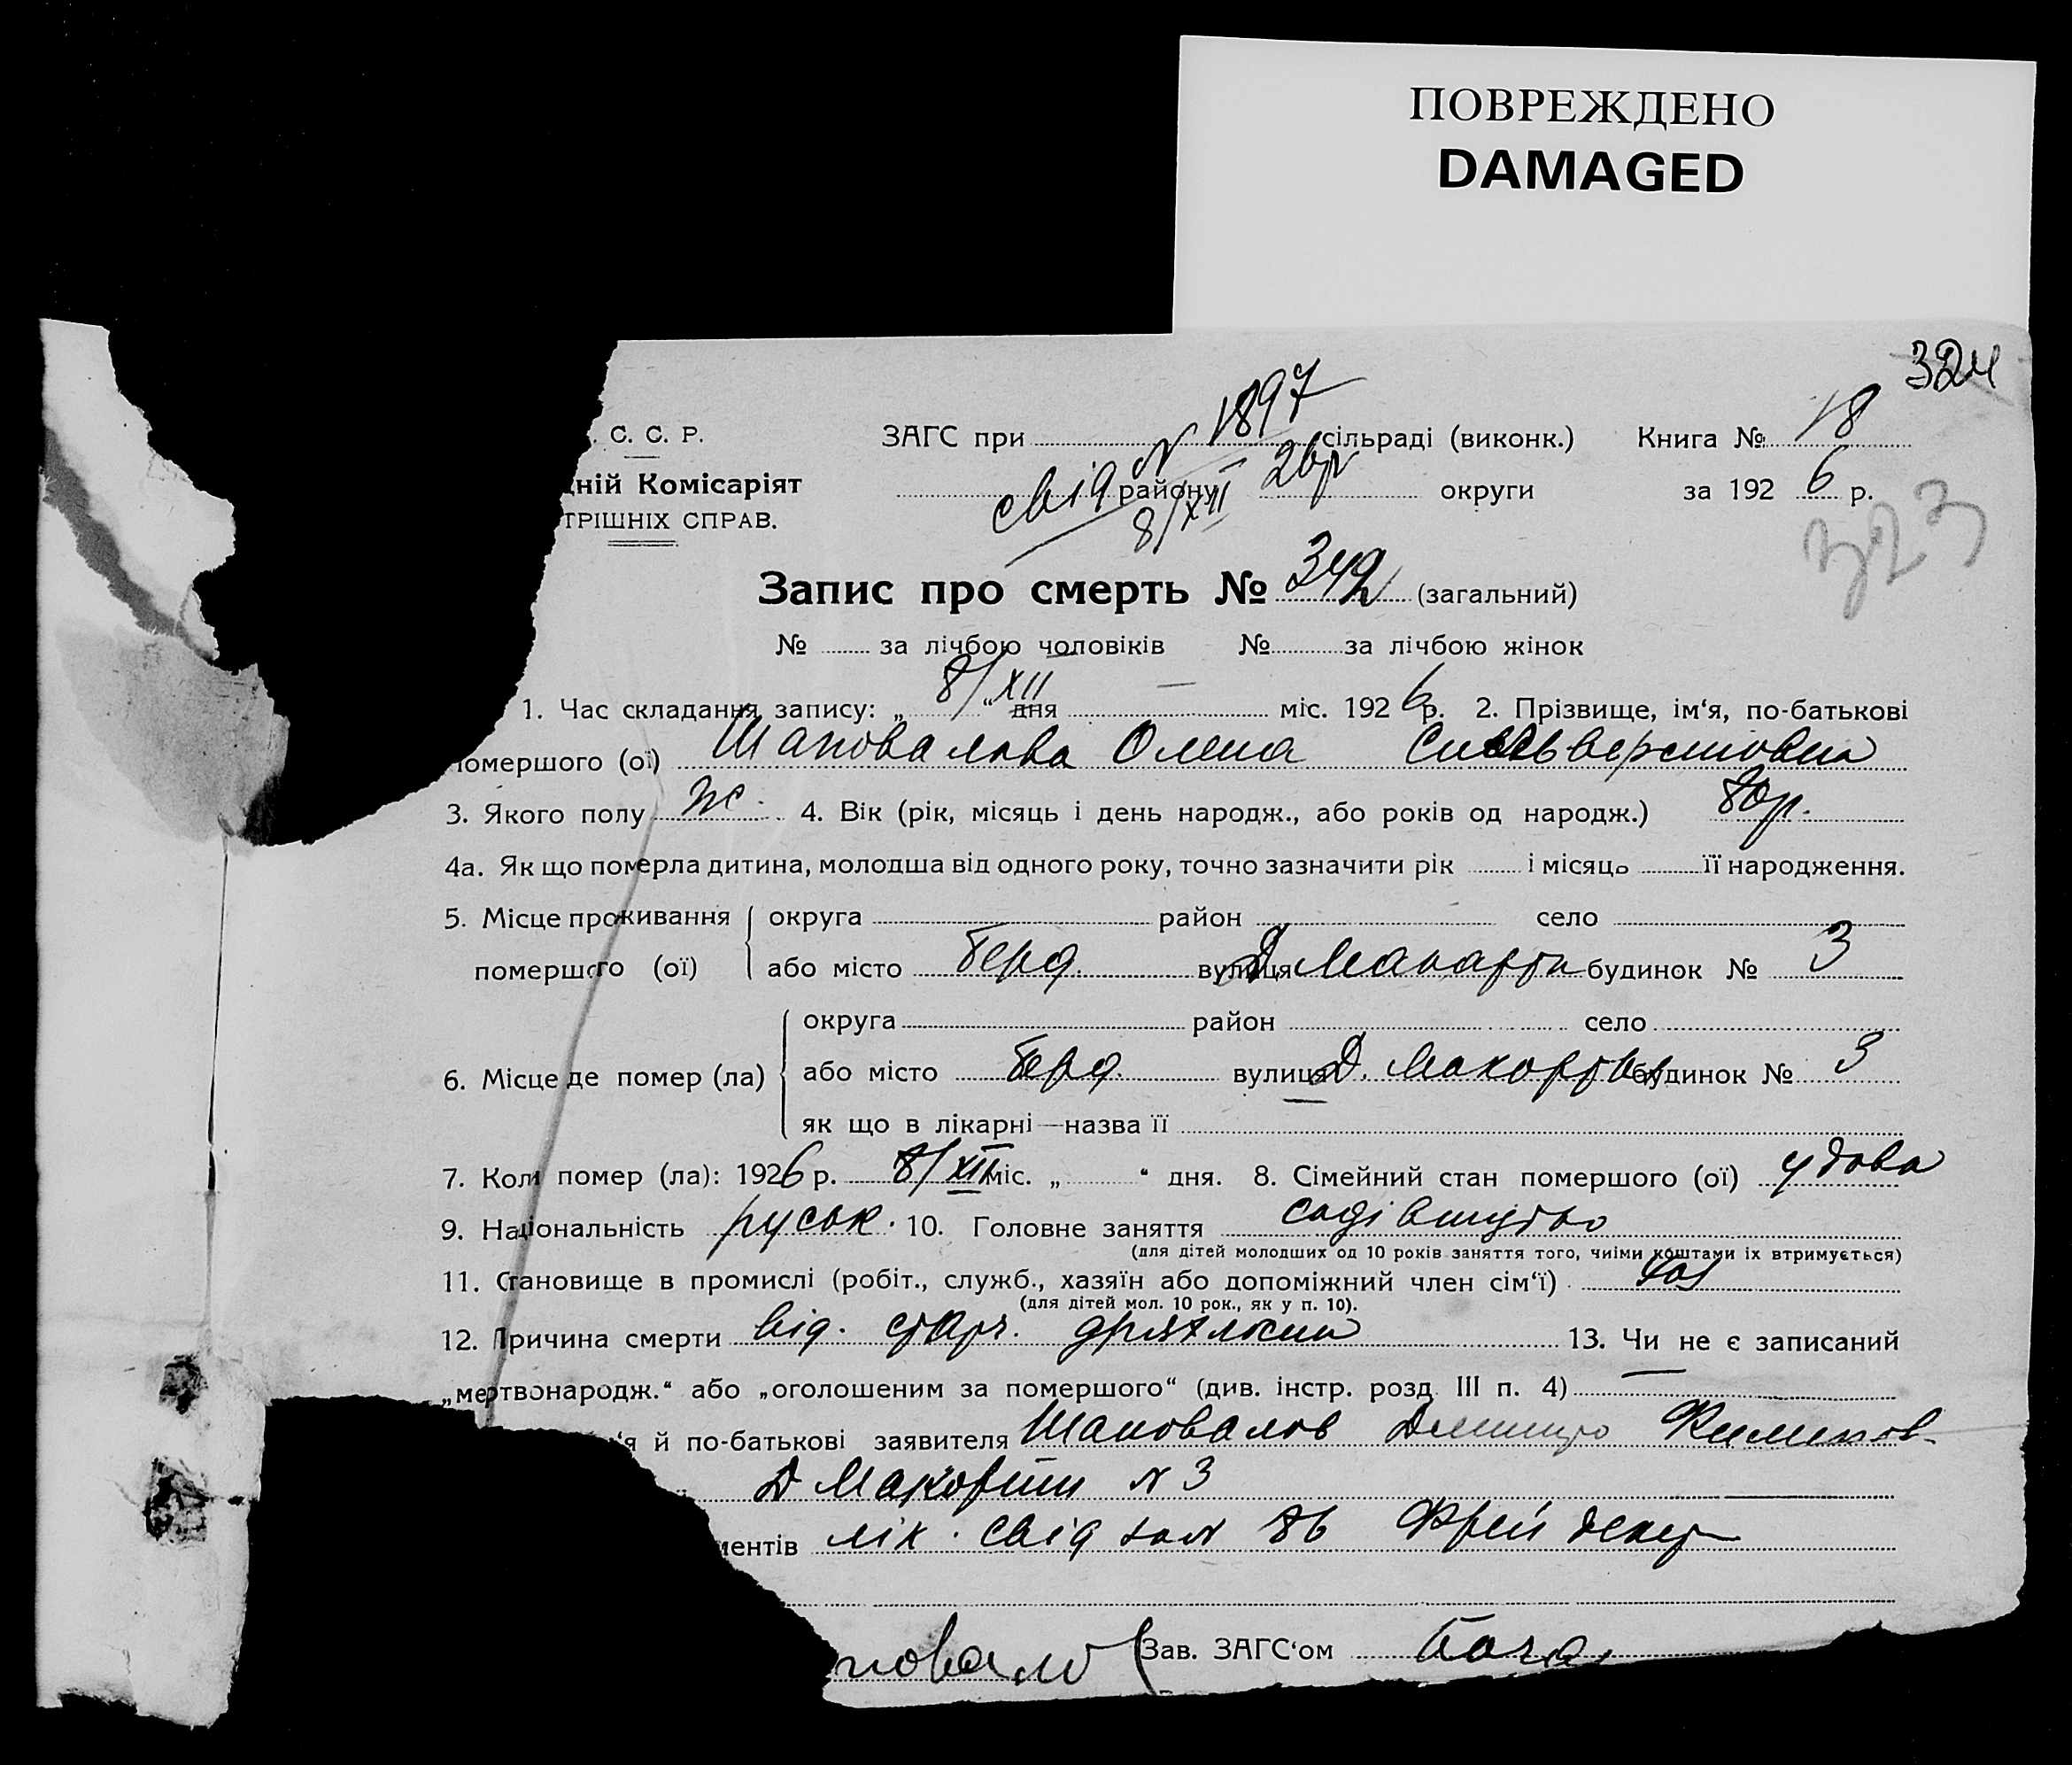 ПОВРЕЖДЕНО
DAMAGED
324
С. С. Р.
ЗАГС при № 1897 сільраді (виконк.) Книга № 18
дній Комісаріят
свід району 8/XII 26р округи за 1926 р.
ТРІШНІХ СПРАВ.
323
Запис про смерть № 342 (загальний)
№ за лічбою чоловіків № за лічбою жінок
1. Час складання запису: „ 8/XII “ дня міс. 1926 р. 2. Прізвище, ім‘я, по-батькові
помершого (ої) Шаповалова Олена Сильверстовна
3. Якого полу ж. 4. Вік (рік, місяць і день народж., або років од народж.) 80р.
4а. Як що померла дитина, молодша від одного року, точно зазначити рік і місяць її народження.
5. Місце проживання округа район село
помершого (ої) або місто Берд. вулиця Д. будинок № 3
округа район село
6. Місце де помер (ла) або місто Берд. вулиця Д. будинок № 3
як що в лікарні—назва її
7. Коли помер (ла): 1926 р. 8/XII міс. „ “ дня. 8. Сімейний стан помершого (ої) удова
9. Національність руськ. 10. Головне заняття садівництво
(для дітей молодших од 10 років заняття того, чиїми коштами їх втримується)
11. Становище в промислі (робіт., служб., хазяїн або допоміжний член сім‘ї) хаз
(для дітей мол. 10 рок., як у п. 10).
12. Причина смерти від. старч. дряхлости 13. Чи не є записаний
„мертвонародж.“ або „оголошеним за помершого“ (див. інстр. розд. III п. 4) —
‘я й по-батькові заявителя Шаповалов Дмитро
Д № 3
ментів лік. свід за № 86
повалов Зав. ЗАГС‘ом